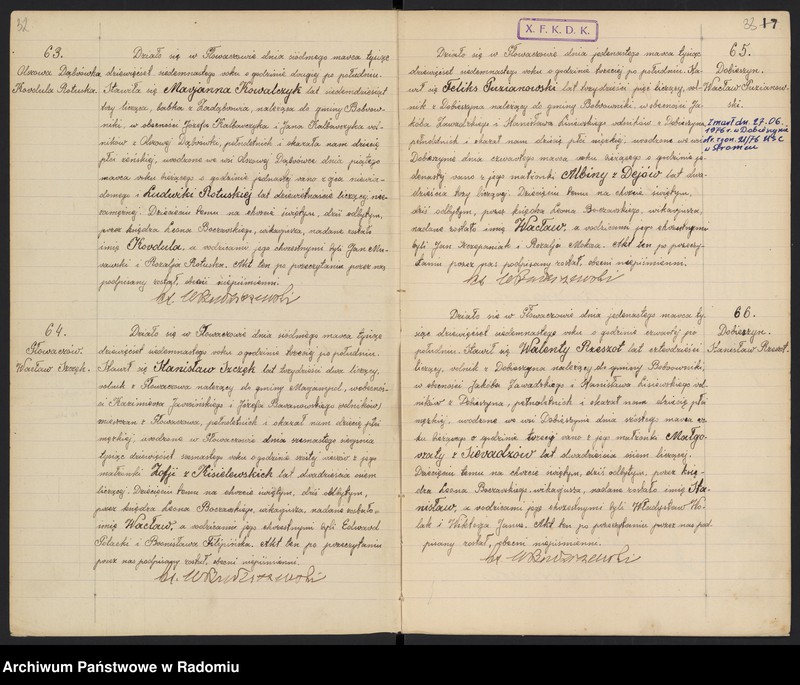 32
63.
Kordula Rotuska.
Działo się w Słowaczowie dnia siódmego marca tysiąc
dziewięćset siedemnastego roku o godzinie drugiej po południu.
Stawiła się Maryanna Kowalczyk lat siedemdziesiąt
trzy licząca, babka z należąca do gminy Bobrow-
niki, w obecności Józefa Kalbarczyka i Jana Kalbarczyka rol-
ników z Dąbrówki, pełnoletnich i okazała nam dziecię
płci żeńskiej, urodzone we wsi Dąbrówce dnia piątego
marca roku bieżącego o godzinie jedenastej rano z ojca niewia-
domego i Ludwiki Rotuskiej lat dziewiętnaście liczącej, nie-
zamężnej. Dziecięciu temu na chrzcie świętym, dziś odbytym,
przez księdza Leona Boczarskiego, wikaryusza, nadane zostało
imię Kordula, a rodzicami jego chrzestnymi byli Jan
i Rozalja Rotuska. Akt ten po przeczytaniu przez nas
podpisany został, obecni niepiśmienni.
64.
Słowaczów.
Wacław Szczęk.
Działo się w Słowaczowie dnia siódmego marca tysiąc
dziewięćset siedemnastego roku o godzinie trzeciej po południu.
Stawił się Stanisław Szczęk lat trzydzieści dwa liczący,
rolnik z Słowaczowa należący do gminy Maryampol, w obecnoś-
ci Kazimierza Jaworskiego i Józefa Baranowskiego rolników
z Słowaczowa, pełnoletnich i okazał nam dziecię płci
męskiej, urodzone w Słowaczowie dnia osiemnastego sierpnia
tysiąc dziewięćset szesnastego roku o godzinie szóstej rano z jego
małżonki Zofji z Kisielewskich lat dwadzieścia osiem
liczącej. Dziecięciu temu na chrzcie świętym, dziś odbytym,
przez księdza Leona Boczarskiego, wikaryusza, nadane zostało
imię Wacław, a rodzicami jego chrzestnymi byli Edward
Polaski i Bronisława Filipińska. Akt ten po przeczytaniu
przez nas podpisany został, obecni niepiśmienni.
X. F. K. D. K.
33 17
65.
Dobieszyn.
Wacław Puzianow-
ski.
Zmarł dn. 27.06.
1976 r. w Dobieszynie
akt zgon. 21/76 USC
w Stromcu
Działo się w Słowaczowie dnia jedenastego marca tysiąc
dziewięćset siedemnastego roku o godzinie trzeciej po południu. Sta-
wił się Feliks Puzianowski lat trzydzieści pięć liczący, rol-
nik z Dobieszyna należący do gminy Bobrowniki, w obecności Ja-
kóba Zawadzkiego i Stanisława Lisiewskiego rolników z Dobieszyna
pełnoletnich i okazał nam dziecię płci męskiej, urodzone we wsi
Dobieszynie dnia czwartego marca roku bieżącego o godzinie je-
denastej rano z jego małżonki Albiny z Dejów lat dwa-
dzieścia trzy liczącej. Dziecięciu temu na chrzcie świętym,
dziś odbytym, przez księdza Leona Boczarskiego, wikaryusza,
nadane zostało imię Wacław, a rodzicami jego chrzestnymi
byli Jan Krzepaniak i Rozalja Mokra. Akt ten po przeczy-
taniu przez nas podpisany został, obecni niepiśmienni.
66.
Dobieszyn.
Stanisław Rzeszot.
Działo się w Słowaczowie dnia jedenastego marca ty-
siąc dziewięćset siedemnastego roku o godzinie czwartej po
południu. Stawił się Walenty Rzeszot lat czterdzieści
liczący, rolnik z Dobieszyna należący do gminy Bobrowniki,
w obecności Jakóba Zawadzkiego i Stanisława Lisiewskiego rol-
ników z Dobieszyna, pełnoletnich i okazał nam dziecię płci
męskiej, urodzone we wsi Dobieszynie dnia szóstego marca ro-
ku bieżącego o godzinie trzeciej rano z jego małżonki Małgo-
rzaty z lat dwadzieścia osiem liczącej.
Dziecięciu temu na chrzcie świętym, dziś odbytym, przez księ-
dza Leona Boczarskiego, wikaryusza, nadane zostało imię Sta-
nisław, a rodzicami jego chrzestnymi byli Władysław Wo-
lak i Wiktorja Janus. Akt ten po przeczytaniu przez nas pod-
pisany został, obecni niepiśmienni.
Archiwum Państwowe w Radomiu